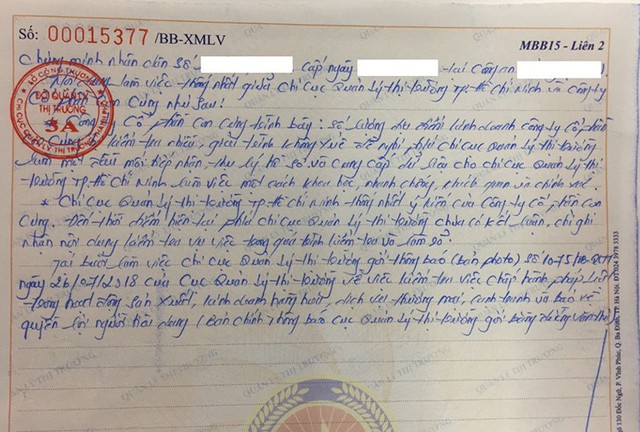 Số: 00015377 /BB-XMLV
MBB15 - Liên 2
Chứng minh nhân dân số cấp ngày tại Công an
Nội dung làm việc thống nhất giữa Chi Cục Quản Lý thị trường TP. Hồ Chí Minh và Công ty
Cổ phần Con Cưng như sau:
* Công ty Cổ phần Con Cưng trình bày: số lượng địa điểm kinh doanh Công ty Cổ phần
Con Cưng kiểm tra nhiều, đề nghị phía Chi cục Quản Lý thị trường
làm một đầu mối tiếp nhận thụ lý hồ sơ và cung cấp dữ liệu cho Chi cục Quản Lý thị
trường TP. Hồ Chí Minh làm việc một cách khoa học, nhanh chóng, khách quan và chính xác.
* Chi Cục Quản Lý thị trường TP. Hồ Chí Minh thống nhất ý kiến của Công ty Cổ phần Con
Cưng. Đến thời điểm hiện tại phía Chi cục Quản Lý thị trường chưa có kết luận, chỉ ghi
nhận nội dung kiểm tra vụ việc trong quá trình kiểm tra và làm rõ.
Tại buổi làm việc Chi cục Quản Lý thị trường gởi thông báo (bản photo) số
ngày 26/07/2018 của Cục Quản Lý thị trường về việc kiểm tra việc chấp hành pháp luật
trong hoạt động sản xuất, kinh doanh hàng hoá, dịch vụ thương mại, cạnh tranh và bảo vệ
quyền lợi người tiêu dùng (bản chính thông báo Cục Quản Lý thị trường gởi bằng đường
BỘ CÔNG THƯƠNG
ĐỘI QUẢN LÝ
THỊ TRƯỜNG
3A
CHI CỤC QUẢN LÝ THỊ TRƯỜNG
QUẢN LÝ THỊ TRƯỜNG
130 Đốc Ngữ, P. Vĩnh Phúc, Q. Ba Đình, TP. Hà Nội, ĐT: 024 3978 3333